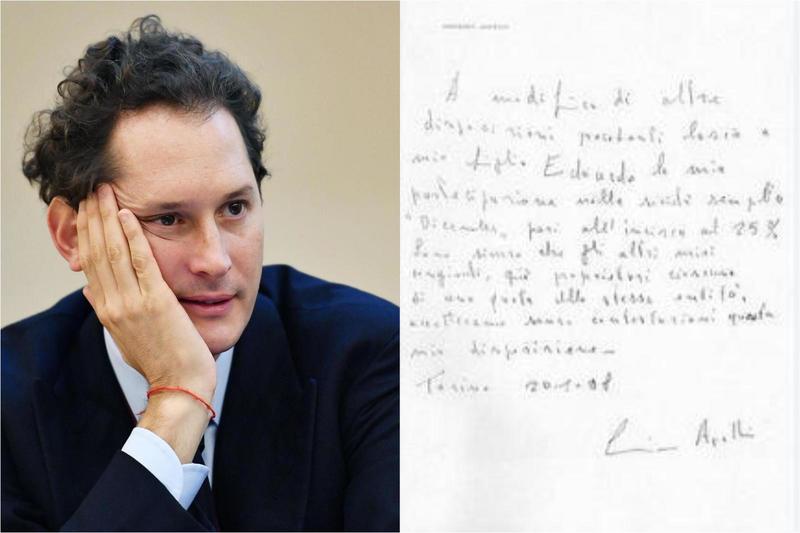 A modifica di altre
disposizioni precedenti lascio a
mio figlio Edoardo la mia
partecipazione nella società semplice
"Dicembre", pari all'incirca al 25%
Sono sicuro che gli altri miei
congiunti, già proprietari ciascuno
di una quota della stessa entità,
accetteranno senza contestazioni questa
mia disposizione
Torino 20-1-98
Agnelli